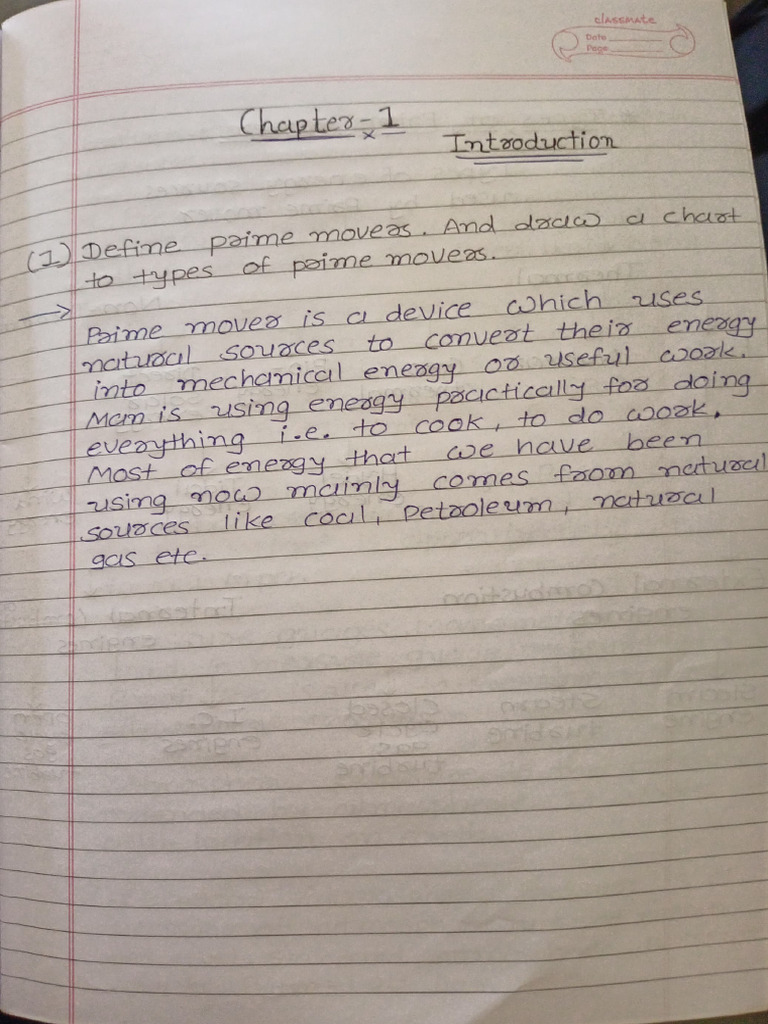 classmate
Date
Page
Chapter-1
Introduction
(1) Define prime movers. And draw a chart
to types of prime movers.
→ Prime mover is a device which uses
natural sources to convert their energy
into mechanical energy or useful work.
Man is using energy practically for doing
everything i.e. to cook, to do work.
Most of energy that we have been
using now mainly comes from natural
sources like coal, petroleum, natural
gas etc.